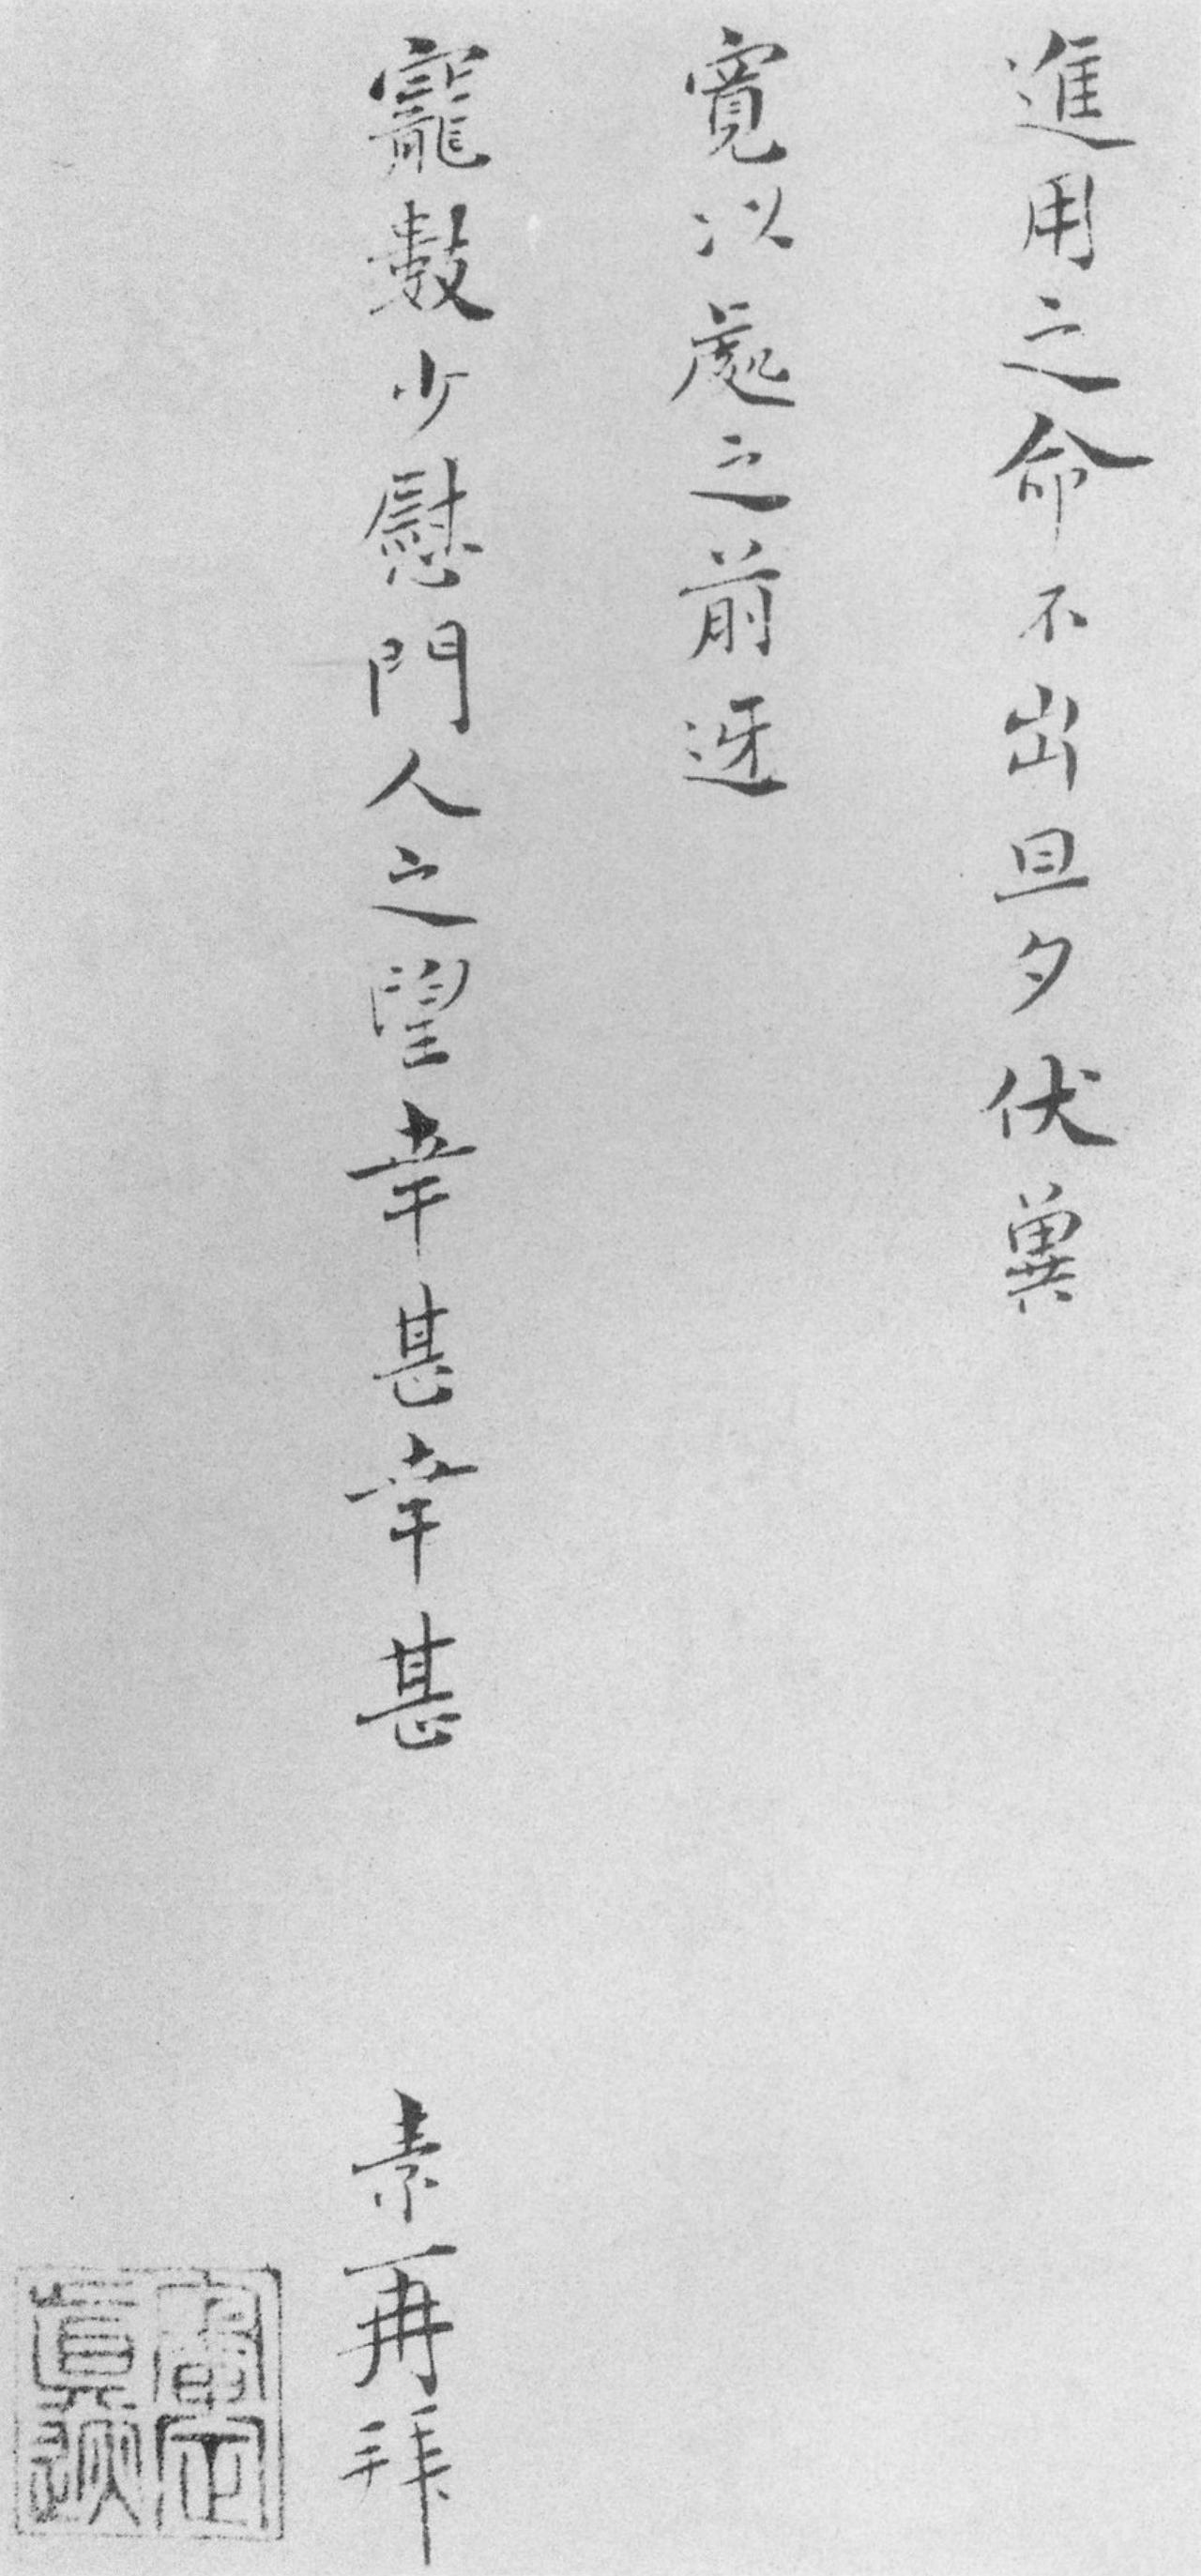 進用之命不出旦夕伏冀
寬以處之前迓
寵數少慰門人之望幸甚幸甚
素再拜